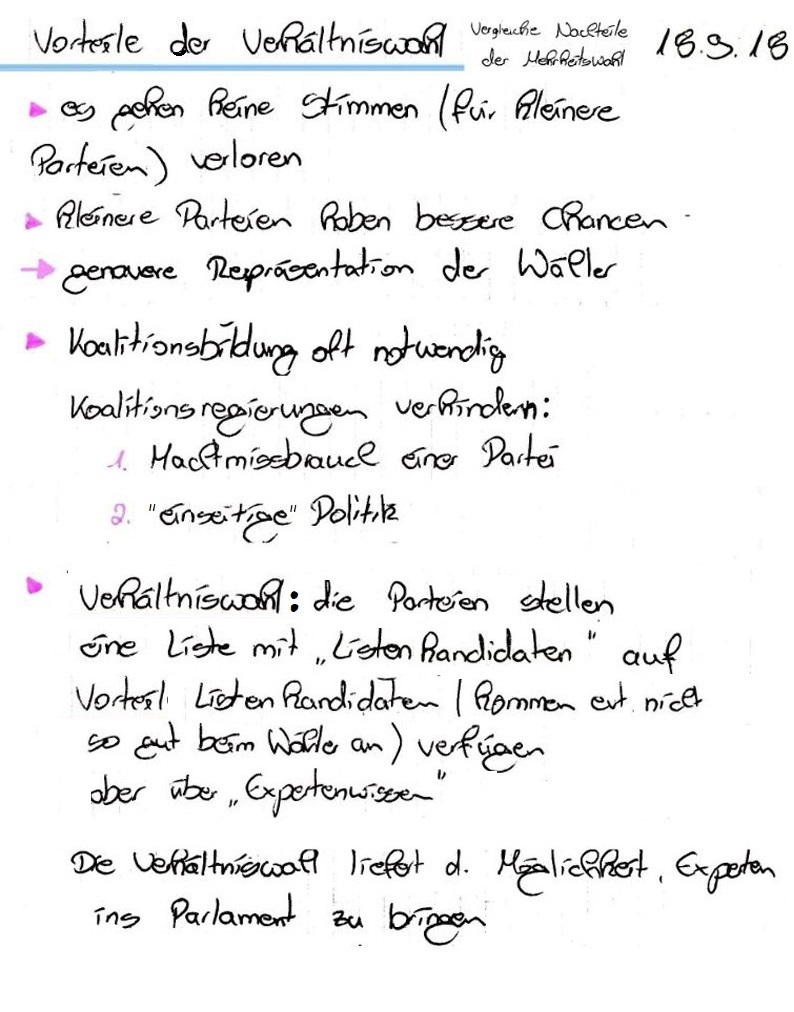 Vorteile der Verhältniswahl Vergleiche Nachteile der Mehrheitswahl 18.9.18
▸ es gehen keine Stimmen (für kleinere
Parteien) verloren
▸ kleinere Parteien haben bessere Chancen
→ genauere Repräsentation der Wähler
▸ Koalitionsbildung oft notwendig
Koalitionsregierungen verhindern:
1. Machtmissbrauch einer Partei
2. "einseitige" Politik
▸ Verhältniswahl: die Parteien stellen
eine Liste mit „Listenkandidaten" auf
Vorteil Listenkandidaten (kommen evt. nicht
so gut beim Wähler an) verfügen
aber über „Expertenwissen"
Die Verhältniswahl liefert d. Möglichkeit, Experten
ins Parlament zu bringen